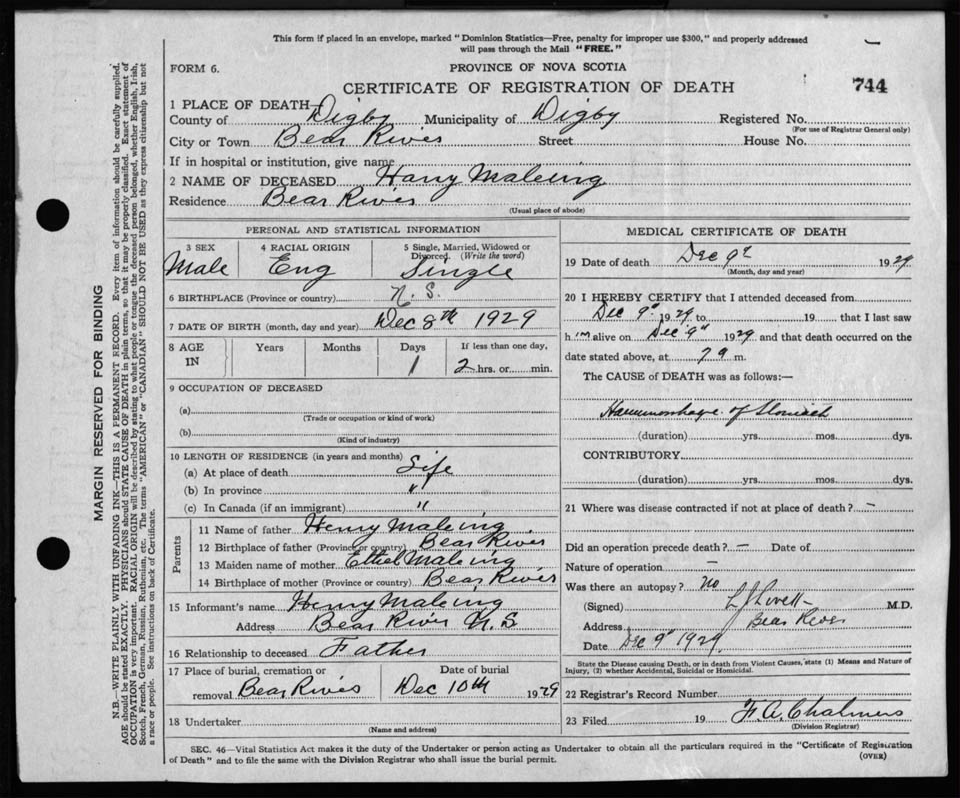 This form if placed in an envelope, marked "Dominion Statistics—Free, penalty for improper use $300," and properly addressed
will pass through the Mail "FREE."
FORM 6.
PROVINCE OF NOVA SCOTIA
CERTIFICATE OF REGISTRATION OF DEATH
744
1 PLACE OF DEATH
County of Digby Municipality of Digby Registered No.
(For use of Registrar General only)
City or Town Bear River Street House No.
If in hospital or institution, give name
2 NAME OF DECEASED Harry Maleing
Residence Bear River
(Usual place of abode)
PERSONAL AND STATISTICAL INFORMATION
3 SEX 4 RACIAL ORIGIN 5 Single, Married, Widowed or
Divorced. (Write the word)
Male Eng Single
6 BIRTHPLACE (Province or country) N. S.
7 DATE OF BIRTH (month, day and year) Dec 8th 1929
8 AGE IN Years Months Days If less than one day,
1 2 hrs. or min.
9 OCCUPATION OF DECEASED
(a)
(Trade or occupation or kind of work)
(b)
(Kind of industry)
10 LENGTH OF RESIDENCE (in years and months)
(a) At place of death Life
(b) In province "
(c) In Canada (if an immigrant) "
Parents
11 Name of father Henry Maleing
12 Birthplace of father (Province or country) Bear River
13 Maiden name of mother Ethel Maleing
14 Birthplace of mother (Province or country) Bear River
15 Informant's name Henry Maleing
Address Bear River N.S
16 Relationship to deceased Father
17 Place of burial, cremation or Date of burial
removal Bear River Dec 10th 1929
18 Undertaker
(Name and address)
MEDICAL CERTIFICATE OF DEATH
19 Date of death Dec 9th 1929
(Month, day and year)
20 I HEREBY CERTIFY that I attended deceased from
Dec 9th 1929 to 19 that I last saw
h im alive on Dec 9th 1929 and that death occurred on the
date stated above, at m.
The CAUSE of DEATH was as follows:—
Haemmorhage of Stomach
(duration) yrs. mos. dys.
CONTRIBUTORY
(duration) yrs. mos. dys.
21 Where was disease contracted if not at place of death? –
Did an operation precede death? – Date of
Nature of operation –
Was there an autopsy? No
(Signed) L J Lovett M.D.
Address Bear River
Date Dec 9th 1929
State the Disease causing Death, or in death from Violent Causes, state (1) Means and Nature of
Injury, (2) whether Accidental, Suicidal or Homicidal.
22 Registrar's Record Number
23 Filed 19 F. A. Chalmers
(Division Registrar)
SEC. 46—Vital Statistics Act makes it the duty of the Undertaker or person acting as Undertaker to obtain all the particulars required in the "Certificate of Registration
of Death" and to file the same with the Division Registrar who shall issue the burial permit.
(OVER)
MARGIN RESERVED FOR BINDING
N.B.—WRITE PLAINLY WITH UNFADING INK—THIS IS A PERMANENT RECORD. Every item of information should be carefully supplied.
AGE should be stated EXACTLY. PHYSICIANS should STATE CAUSE OF DEATH in plain terms, so that it may be properly classified. Exact statement of
OCCUPATION is very important. RACIAL ORIGIN will be described by stating to what people or tongue the deceased person belonged, whether English, Irish,
Scotch, French, German, Russian, Ruthenian, etc. The terms "AMERICAN" or "CANADIAN" SHOULD NOT BE USED as they express citizenship but not
a race or people. See instructions on back of Certificate.